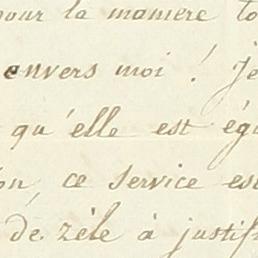 pour la maniere to
envers moi ! Je
qu'elle est éga
on, ce service es
de zèle à justif